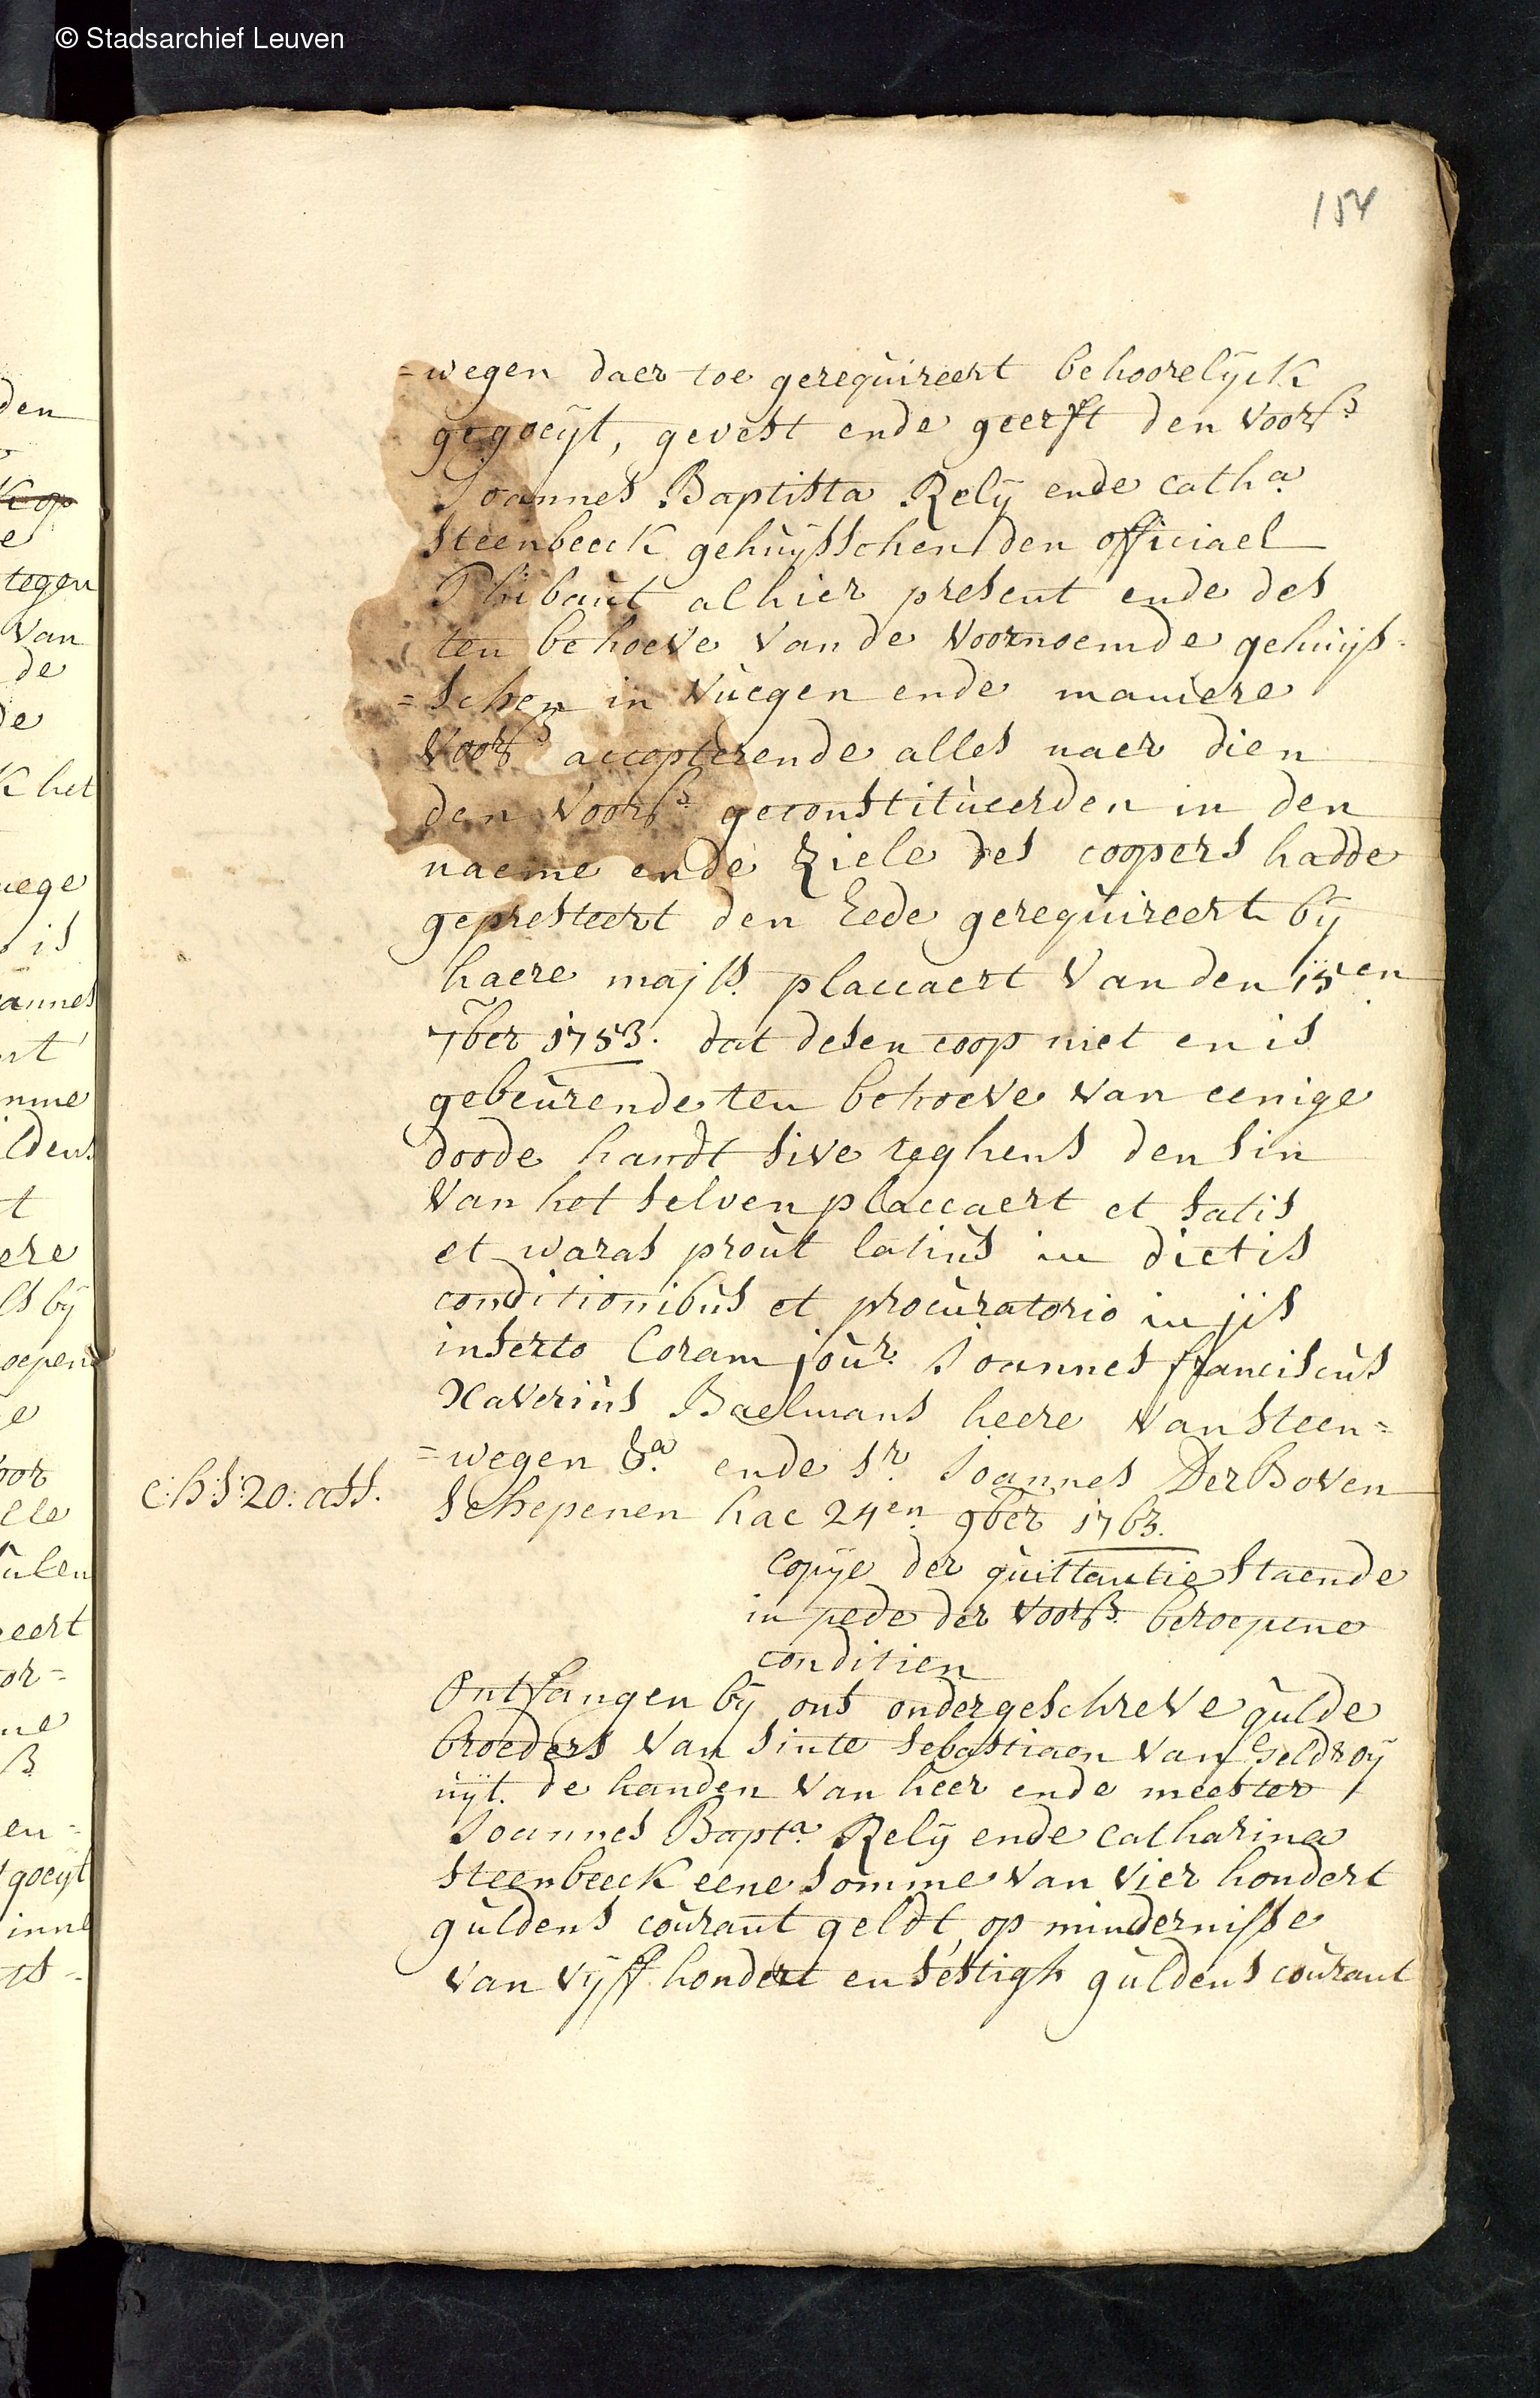 © Stadsarchief Leuven
154
=wegen daer toe gerequireert behoorelijck
gegoeijt, gevest ende geerft den voors
Joannes Baptista Relij ende catha
steenbeeck gehuijsschen den officiael
Thibaut alhier present ende des
ten behoeve van de voornoemde gehuijs=
=schen in vuegen ende maniere
voors accepterende alles naer dien
den voors geconstitueerden in den
naeme ende ziele des coopers hadde
gepresteert den Eede gerequireert bij
haere majts. placcaert van den 15en
7ber 1753. dat desen coop niet en is
gebeurende ten behoeve van eenige
doode handt sive teghens den sin
van het selven placcaert et satis
et waras prout latius in dictis
conditionibus et procuratorio in jis
inserto Coram jour. Joannes franciscus
Xaverius Baelmans heere van steen=
=wegen &a. ende sr. Joannes Der Boven
c:h:s:20: ass.
schepenen hac 24en 9ber 1763.
copije der quittantie staende
in pede der voors. beroepene
conditien
Ontfangen bij ons ondergeschreve gulde
broeders van sinte sebastiaen van Geldroij
uijt de handen van heer ende meester
Joannes Bapta. Relij ende catharina
steenbeeck eene somme van vier hondert
guldens courant geldt, op mindernisse
van vijff hondert en sestigh guldens courant